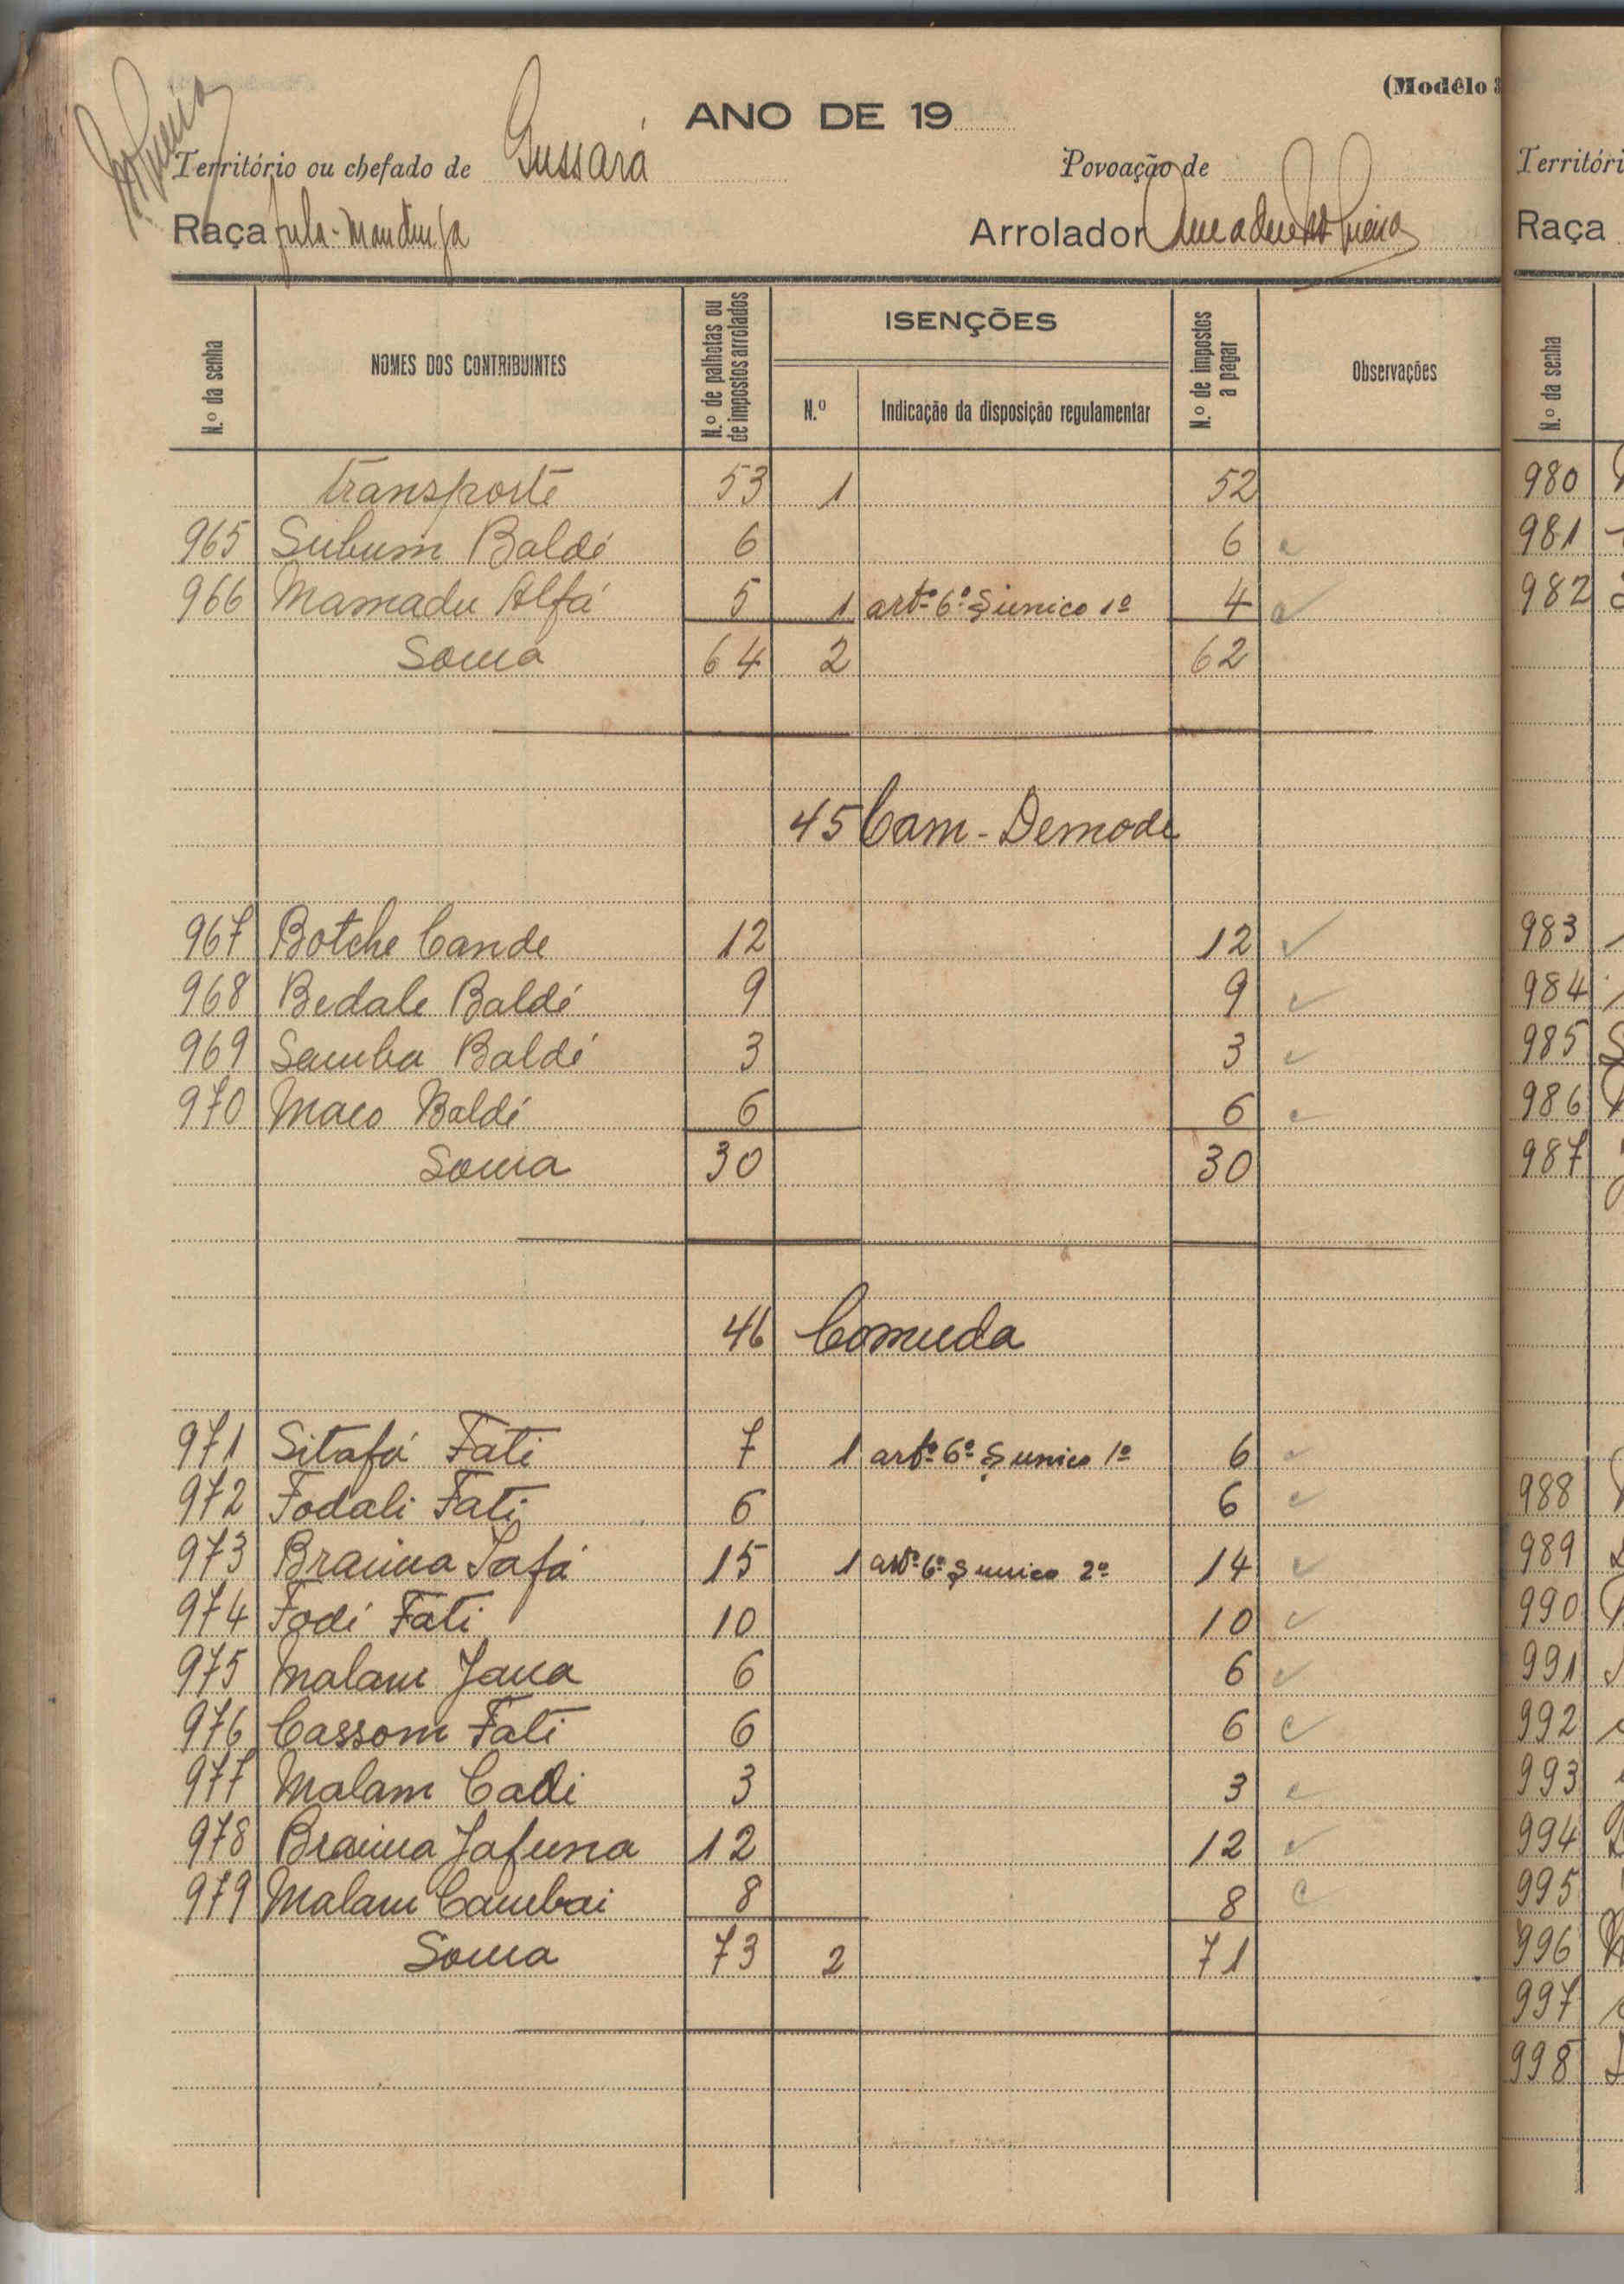 (Modêlo 3
ANO DE 19
Território ou chefado de Gussará Povoação de
Raça fula-mandinga Arrolador
N.º da senha NOMES DOS CONTRIBUINTES N.º de palhotas ou de impostos arrolados ISENÇÕES N.º Indicação da disposição regulamentar N.º de impostos a pagar Observações
Transporte 53 1 52
965 Subum Baldé 6 6
966 Mamadu Alfá 5 1 artº 6º § unico 1º 4
Soma 64 2 62
45 Cam-Demode
967 Botche Cande 12 12 ✓
968 Bedale Baldé 9 9 ✓
969 Samba Baldé 3 3 ✓
970 Maco Baldé 6 6 ✓
Soma 30 30
46 Comuda
971 Sitafá Fati 7 1 artº 6º § unico 1º 6 ✓
972 Fodali Fati 6 6 ✓
973 Braima Safá 15 1 artº 6º § unico 2º 14 ✓
974 Fodé Fati 10 10 ✓
975 Malam Jana 6 6 ✓
976 Cassom Fati 6 6 ✓
977 Malam Cadi 3 3 ✓
978 Braima Jafuna 12 12 ✓
979 Malam Cambai 8 8
Soma 73 2 71
Territóri
Raça
N.º da senha
980
981
982
983
984
985
986
987
988
989
990
991
992
993
994
995
996
997
998